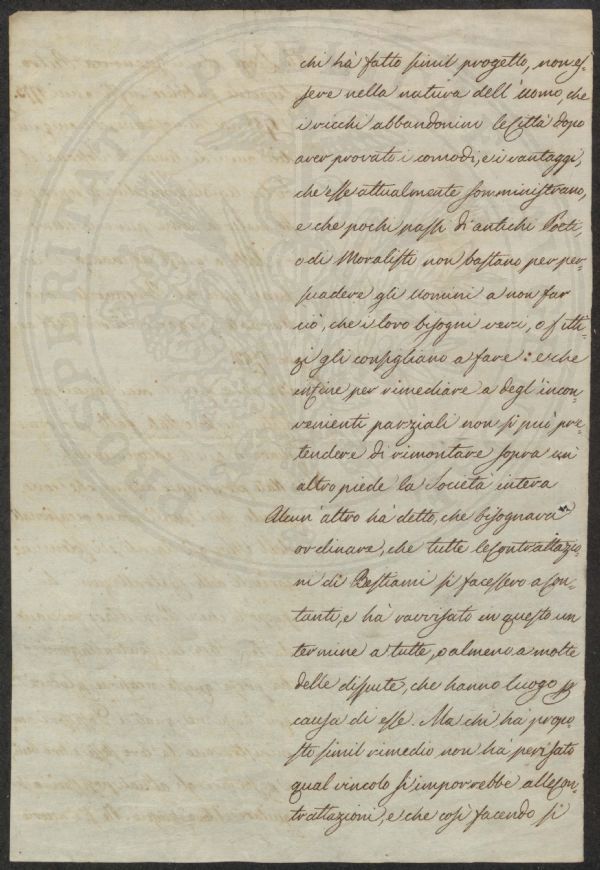 chi hà fatto simil progetto, non es-
sere nella natura dell'uomo, che
i ricchi abbandonin le Città dopo
aver provati i comodi, e i vantaggi,
che esse attualmente somministrano,
e che pochi passi di antichi Poeti,
o di Moralisti non bastano per per-
suadere gli uomini a non far
ciò, che i loro bisogni veri, o fitti-
zi gli consigliano a fare: e che
infine per rimediare a degl'incon-
venienti parziali non si può pre-
tendere di rimontare sopra un
altro piede la Società intera
Alcun'altro hà detto, che bisognava
ordinare, che tutte le contrattazio-
ni di Bestiami si facessero a con-
tanti, e hà ravvisato in questo un
termine a tutte, o almeno a molte
delle dispute, che hanno luogo p
causa di esse. Ma chi hà propo-
sto simil rimedio non hà pensato
qual vincolo si imporrebbe alle con-
trattazioni, e che così facendo si
PROSPERITAT